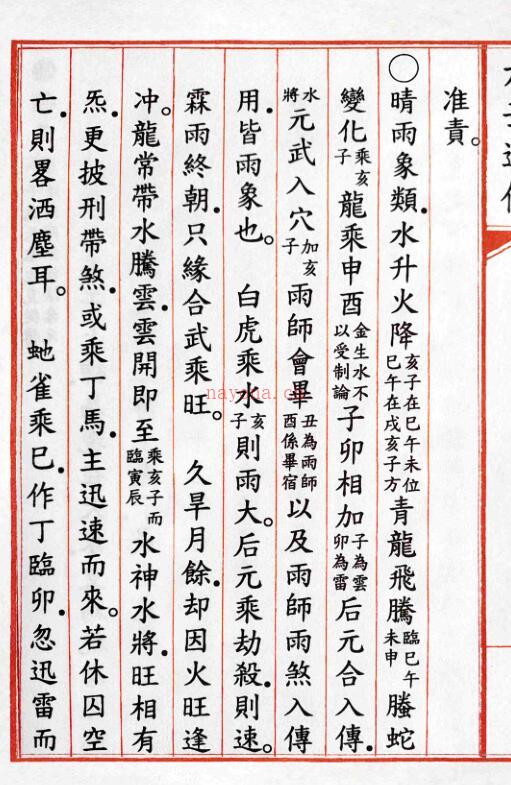 准責。
〇晴雨象類．水升火降亥子在巳午未位巳午在戌亥子方青龍飛騰臨巳午未申螣蛇
變化乘亥子龍乘申酉金生水不以受制論子卯相加子為雲卯為雷后元合入傳．
水將元武入穴加亥子雨師會畢丑為雨師酉係畢宿以及雨師雨煞入傳
用．皆雨象也。 白虎乘水亥子則雨大。后元乘劫殺．則速。
霖雨終朝．只緣合武乘旺。 久旱月餘．却因火旺逢
冲。龍常帶水騰雲．雲開即至乘亥子而臨寅辰水神水將．旺相有
炁．更披刑帶煞．或乘丁馬．主迅速而來。若休囚空
亡．則畧洒塵耳。 虵雀乘巳．作丁臨卯．忽迅雷而
nayona.cn